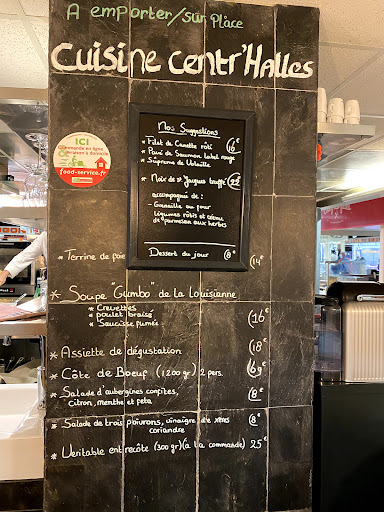 A emporter/sur Place
Cuisine centr'Halles
ICI
Commande en ligne
& livraison à domicile
food-service.fr
Nos Suggestions
* Filet de Canette rôti 16€
* Pavé de Saumon label rouge
* Suprême de Volaille
* Noix de St Jacques truffé 22€
accompagné de :
- Grenaille au four
- Légumes rôtis et crème
de parmesan aux herbes
Dessert du jour 8€
* Terrine de foie 14€
* Soupe "Gumbo" de la Louisianne
* Crevettes
* poulet braisé 16€
* Saucisse fumée
* Assiette de dégustation 18€
* Côte de Boeuf (1200 gr) 2 pers. 69€
* Salade d'aubergines confites, 8€
citron, menthe et feta
* Salade de trois poivrons, vinaigre de xérès 8€
coriandre
* Veritable entrecôte (300 gr) (a la commande) 25€